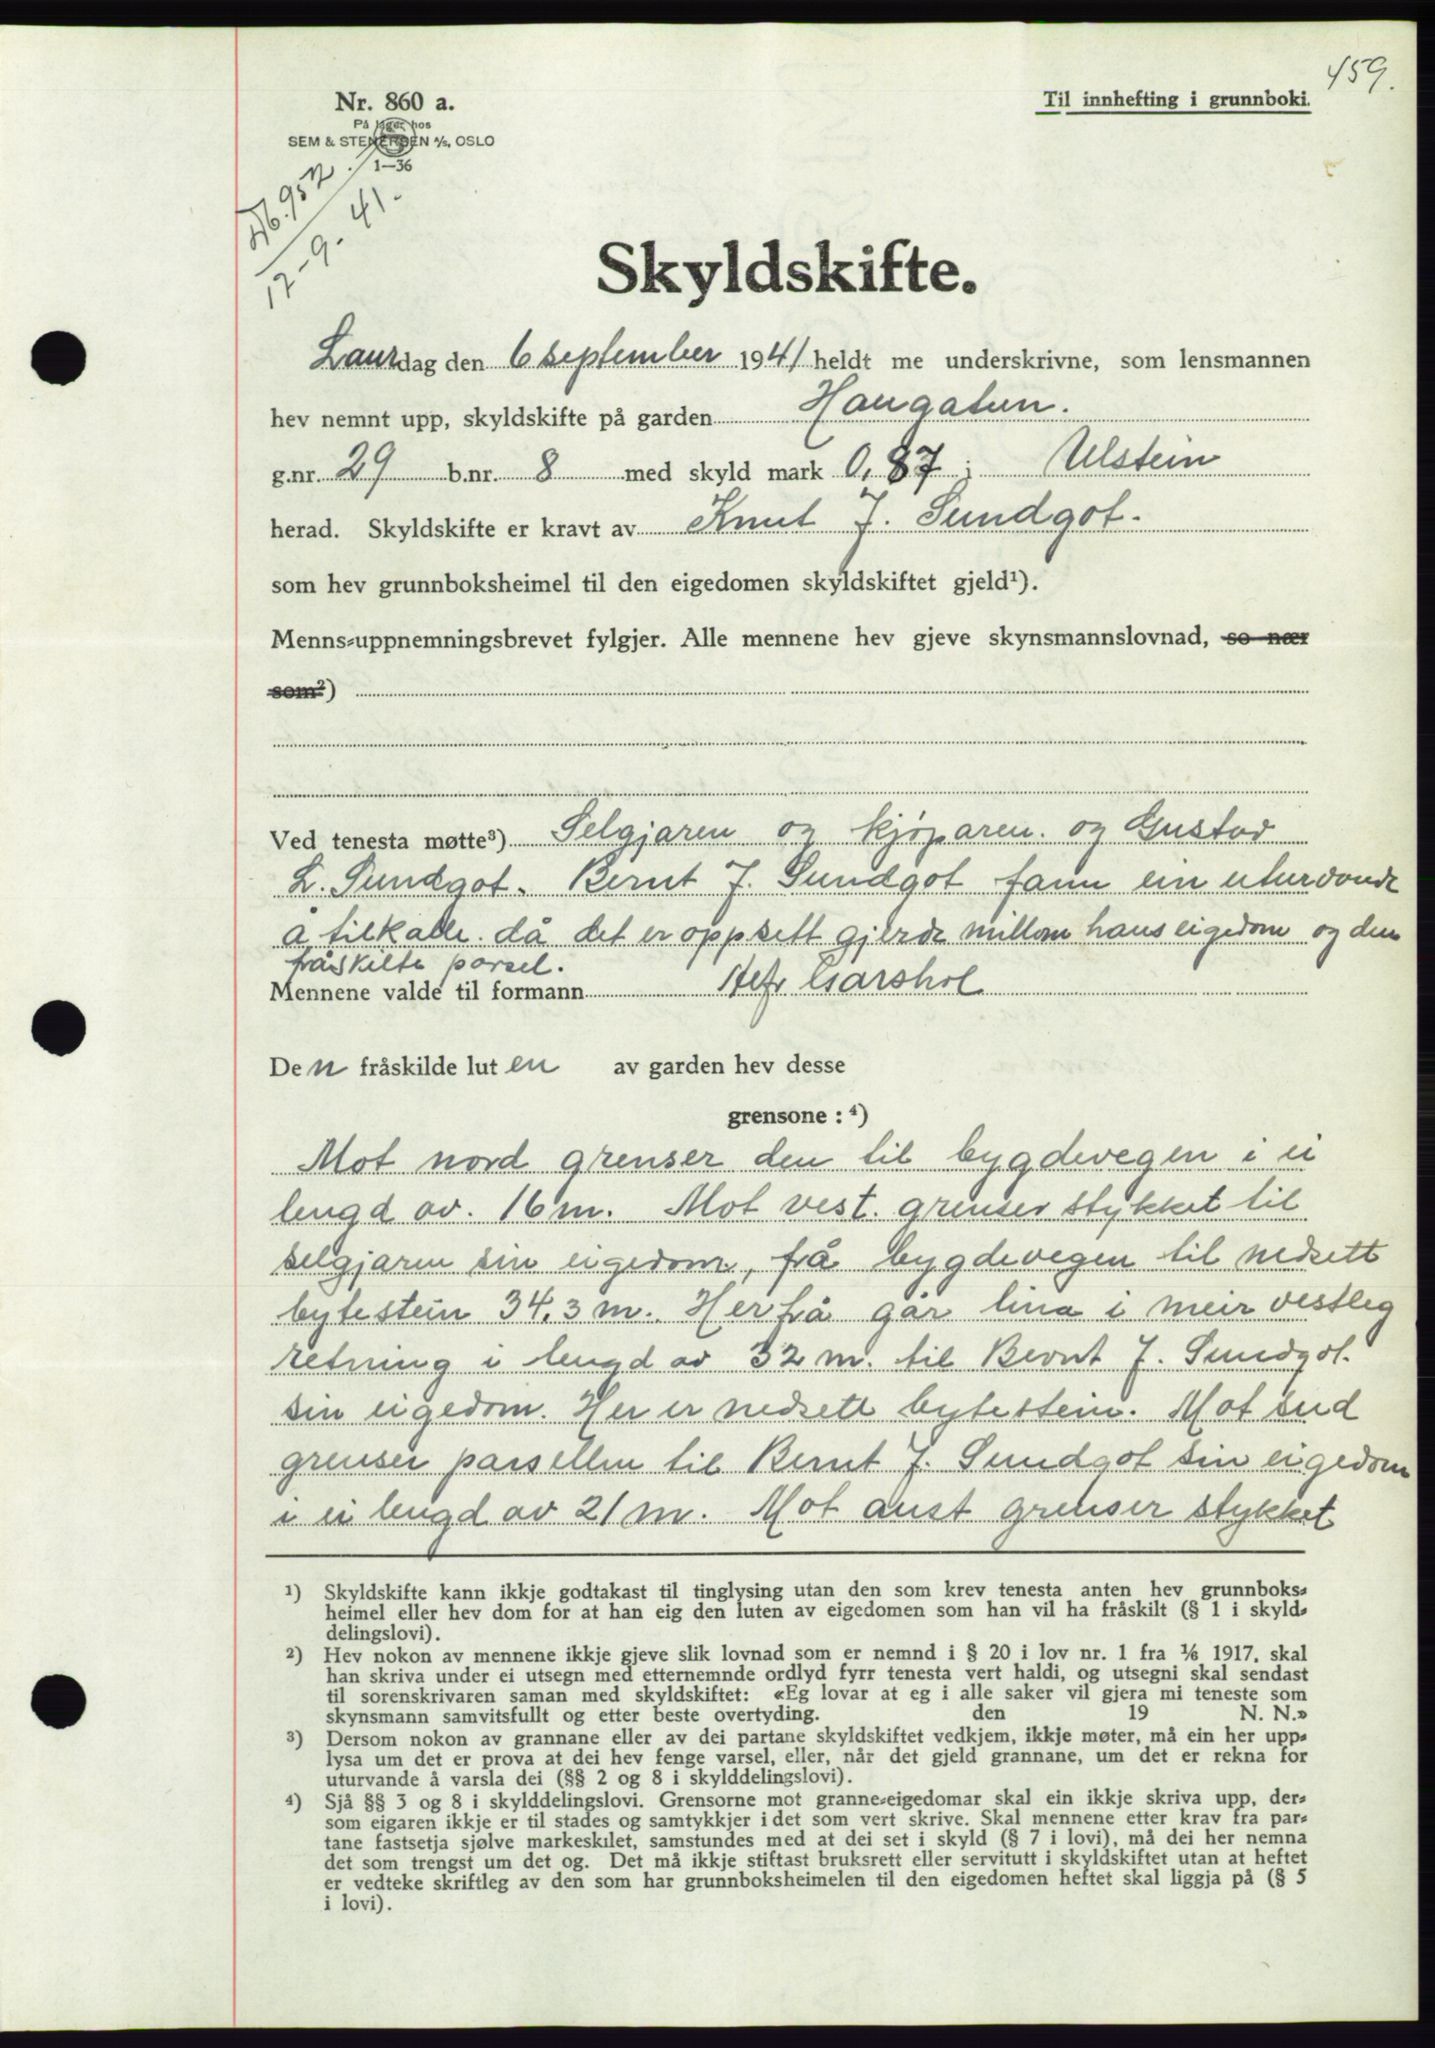 459.
Nr. 860 a.
Til innhefting i grunnboki.
På lager hos
SEM & STENERSEN A/S, OSLO
1—36
952
12-9-41.
Skyldskifte.
Laurdag den 6 september 1941 heldt me underskrivne, som lensmannen
hev nemnt upp, skyldskifte på garden Haugatun.
g.nr. 29 b.nr. 8 med skyld mark 0,87 i Ulstein
herad. Skyldskifte er kravt av Knut J. Sundgot.
som hev grunnboksheimel til den eigedomen skyldskiftet gjeld¹).
Menns-uppnemningsbrevet fylgjer. Alle mennene hev gjeve skynsmannslovnad, so nær
som²)
Ved tenesta møtte³) Selgjaren og kjøparen. og Gustav
L. Sundgot. Bernt J. Sundgot fann ein uturvande
å tilkalle då det er oppsett gjerde millom hans eigedom og den
fråskilte parsel.
Mennene valde til formann Garshol
Den fråskilde luten av garden hev desse
grensone : ⁴)
Mot nord grenser den til bygdevegen i ei
lengd av. 16 m. Mot vest. grenser stykket til
selgjaren sin eigedom, frå bygdevegen til nedsett
bytestein 34,3 m. Herfrå går lina i meir vestleg
retning i lengd av 32 m. til Bernt J. Sundgot.
sin eigedom. Her er nedsett bytestein. Mot sud
grenser parsellen til Bernt J. Sundgot sin eigedom
i ei lengd av 21 m. Mot aust grenser stykket
¹) Skyldskifte kann ikkje godtakast til tinglysing utan den som krev tenesta anten hev grunnboks-
heimel eller hev dom for at han eig den luten av eigedomen som han vil ha fråskilt (§ 1 i skyld-
delingslovi).
²) Hev nokon av mennene ikkje gjeve slik lovnad som er nemnd i § 20 i lov nr. 1 fra 1/6 1917, skal
han skriva under ei utsegn med etternemnde ordlyd fyrr tenesta vert haldi, og utsegni skal sendast
til sorenskrivaren saman med skyldskiftet: «Eg lovar at eg i alle saker vil gjera mi teneste som
skynsmann samvitsfullt og etter beste overtyding. den 19 N. N.»
³) Dersom nokon av grannane eller av dei partane skyldskiftet vedkjem, ikkje møter, må ein her upp-
lysa um det er prova at dei hev fenge varsel, eller, når det gjeld grannane, um det er rekna for
uturvande å varsla dei (§§ 2 og 8 i skylddelingslovi).
⁴) Sjå §§ 3 og 8 i skylddelingslovi. Grensorne mot granne-eigedomar skal ein ikkje skriva upp, der-
som eigaren ikkje er til stades og samtykkjer i det som vert skrive. Skal mennene etter krav fra par-
tane fastsetja sjølve markeskilet, samstundes med at dei set i skyld (§ 7 i lovi), må dei her nemna
det som trengst um det og. Det må ikkje stiftast bruksrett eller servitutt i skyldskiftet utan at heftet
er vedteke skriftleg av den som har grunnboksheimelen til den eigedomen heftet skal liggja på (§ 5
i lovi).